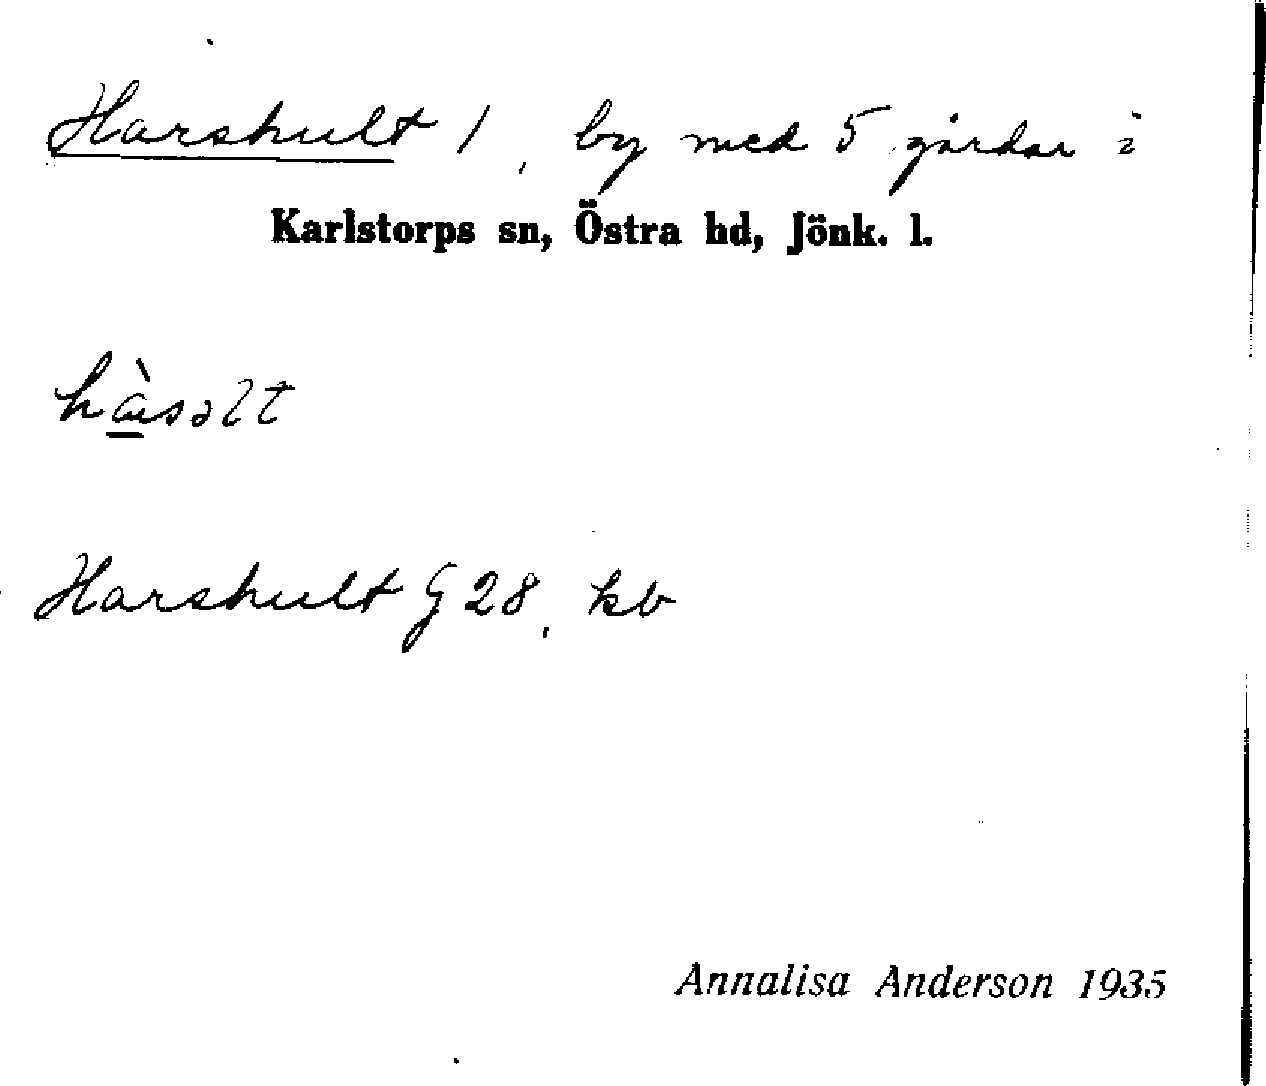 Harshult 1, by med 5 gårdar i
Karlstorps sn, Östra hd, Jönk. l.
hàsəlt
Harshult G 28, kb
Annalisa Anderson 1935